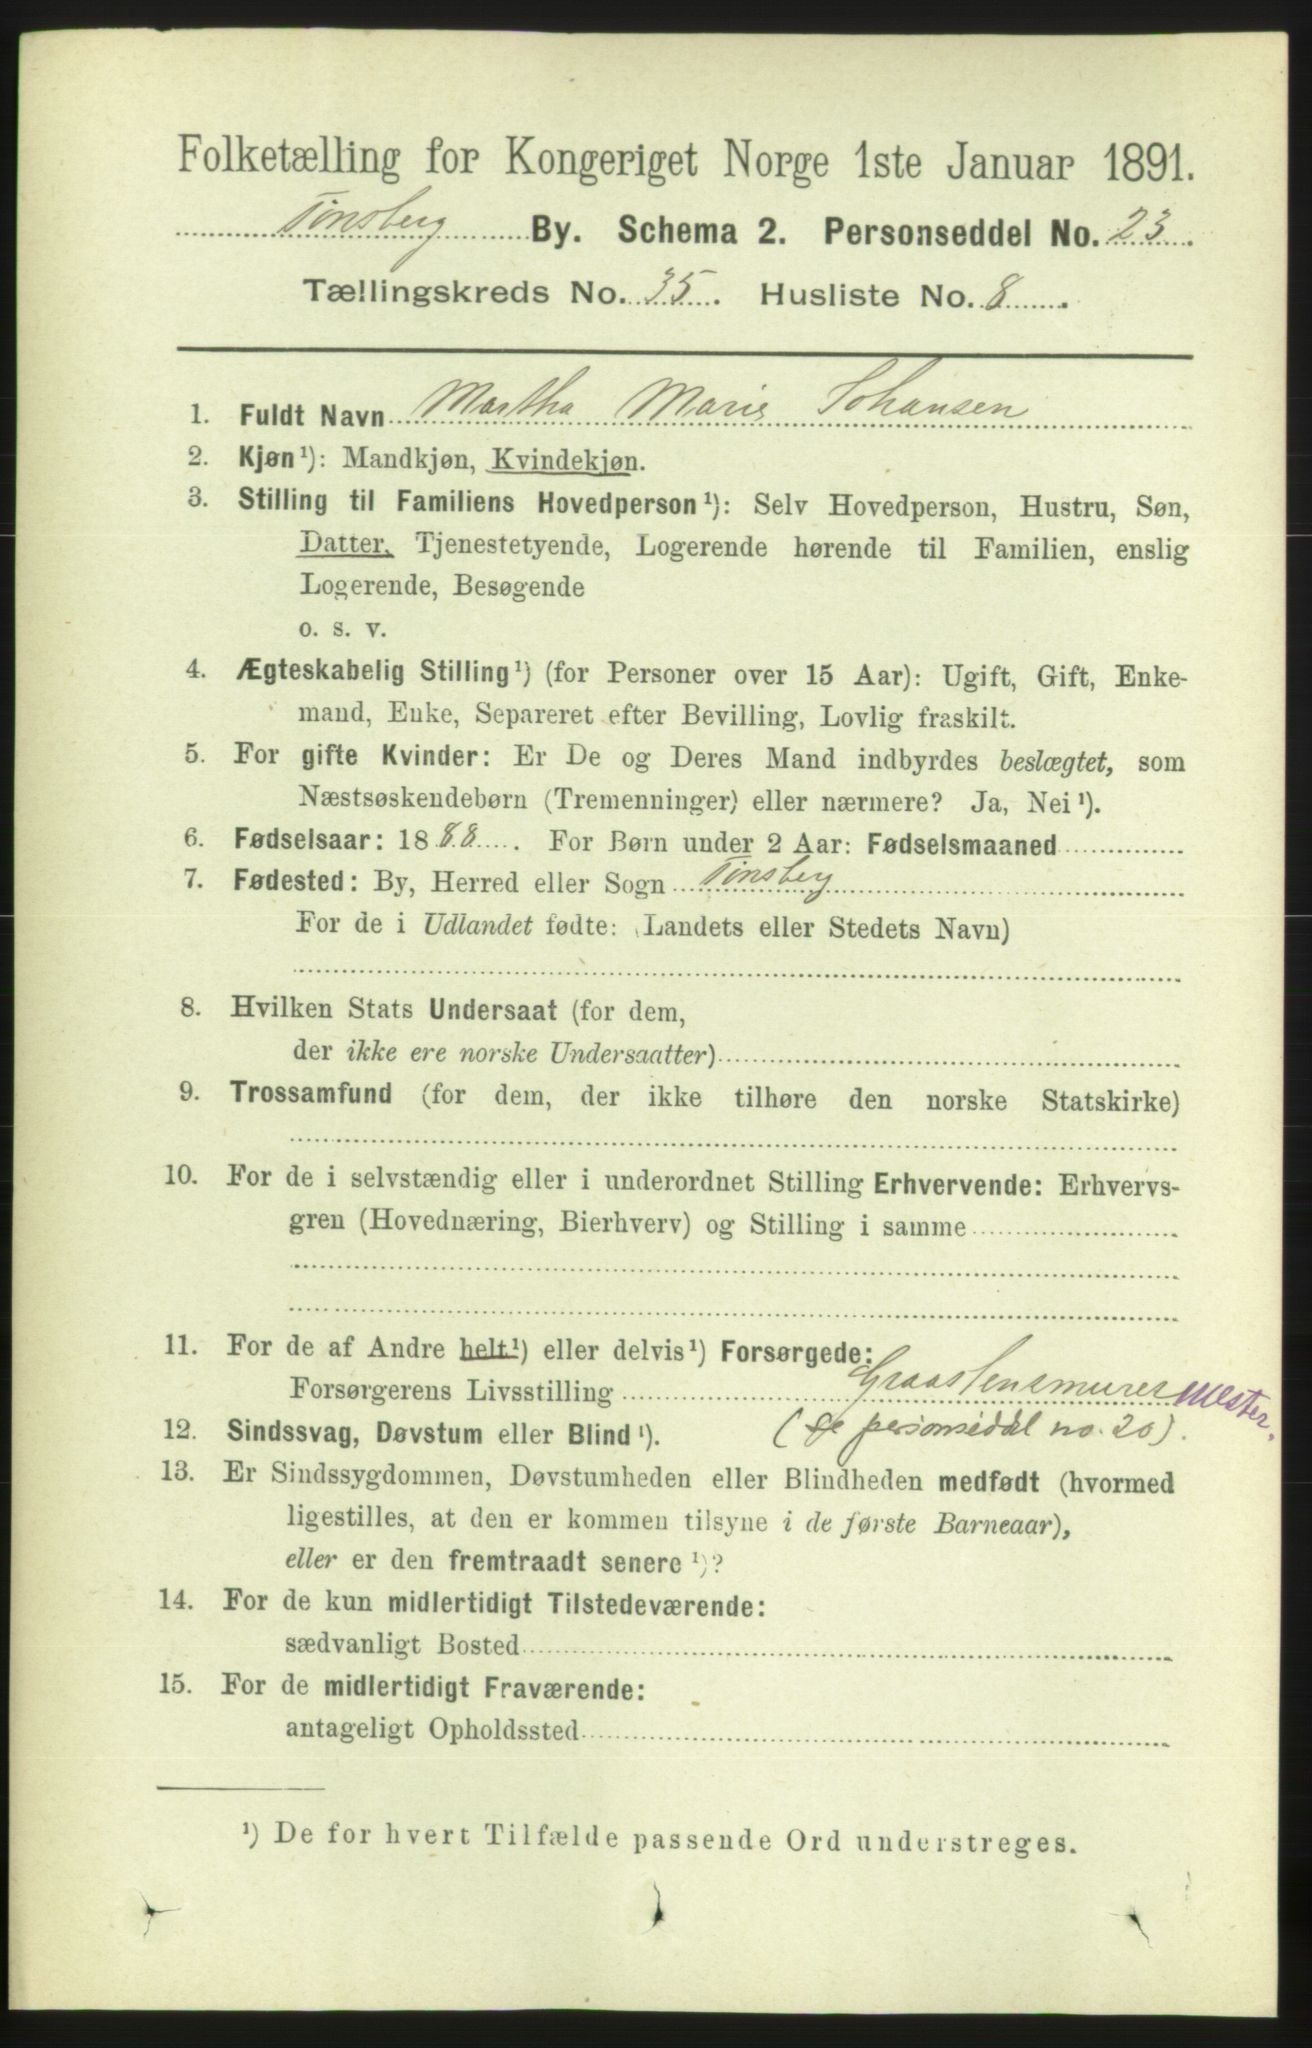 Folketælling for Kongeriget Norge 1ste Januar 1891.
Tønsberg By. Schema 2. Personseddel No. 23.
Tællingskreds No. 35. Husliste No. 8.
1. Fuldt Navn Martha Marie Johansen
2. Kjøn¹): Mandkjøn, Kvindekjøn.
3. Stilling til Familiens Hovedperson¹): Selv Hovedperson, Hustru, Søn,
Datter, Tjenestetyende, Logerende hørende til Familien, enslig
Logerende, Besøgende
o. s. v.
4. Ægteskabelig Stilling¹) (for Personer over 15 Aar): Ugift, Gift, Enke-
mand, Enke, Separeret efter Bevilling, Lovlig fraskilt.
5. For gifte Kvinder: Er De og Deres Mand indbyrdes beslægtet, som
Næstsøskendebørn (Tremenninger) eller nærmere? Ja, Nei¹).
6. Fødselsaar: 1888. For Børn under 2 Aar: Fødselsmaaned
7. Fødested: By, Herred eller Sogn Tønsberg
For de i Udlandet fødte: (Landets eller Stedets Navn)
8. Hvilken Stats Undersaat (for dem,
der ikke ere norske Undersaatter)
9. Trossamfund (for dem, der ikke tilhøre den norske Statskirke)
10. For de i selvstændig eller i underordnet Stilling Erhvervende: Erhvervs-
gren (Hovednæring, Bierhverv) og Stilling i samme
11. For de af Andre helt¹) eller delvis¹) Forsørgede:
Forsørgerens Livsstilling Graastensmurermester.
12. Sindssvag, Døvstum eller Blind¹). (se personseddel no. 20).
13. Er Sindssygdommen, Døvstumheden eller Blindheden medfødt (hvormed
ligestilles, at den er kommen tilsyne i de første Barneaar),
eller er den fremtraadt senere¹)?
14. For de kun midlertidigt Tilstedeværende:
sædvanligt Bosted
15. For de midlertidigt Fraværende:
antageligt Opholdssted
¹) De for hvert Tilfælde passende Ord understreges.